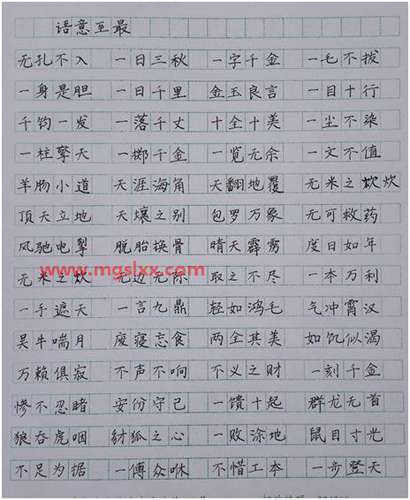 语意至最
无孔不入 一日三秋 一字千金 一毛不拔
一身是胆 一日千里 金玉良言 一目十行
千钧一发 一落千丈 十全十美 一尘不染
一柱擎天 一掷千金 一览无余 一文不值
羊肠小道 天涯海角 天翻地覆 无米之炊炊
顶天立地 天壤之别 包罗万象 无可救药
风驰电掣 脱胎换骨 晴天霹雳 度日如年
www.mgslxx.com
无米之炊 无边无际 取之不尽 一本万利
一手遮天 一言九鼎 轻如鸿毛 气冲霄汉
吴牛喘月 废寝忘食 两全其美 如饥似渴
万籁俱寂 不声不响 不义之财 一刻千金
惨不忍睹 安份守己 一馈十起 群龙无首
狼吞虎咽 豺狐之心 一败涂地 鼠目寸光
不足为据 一傅众咻 不惜工本 一步登天